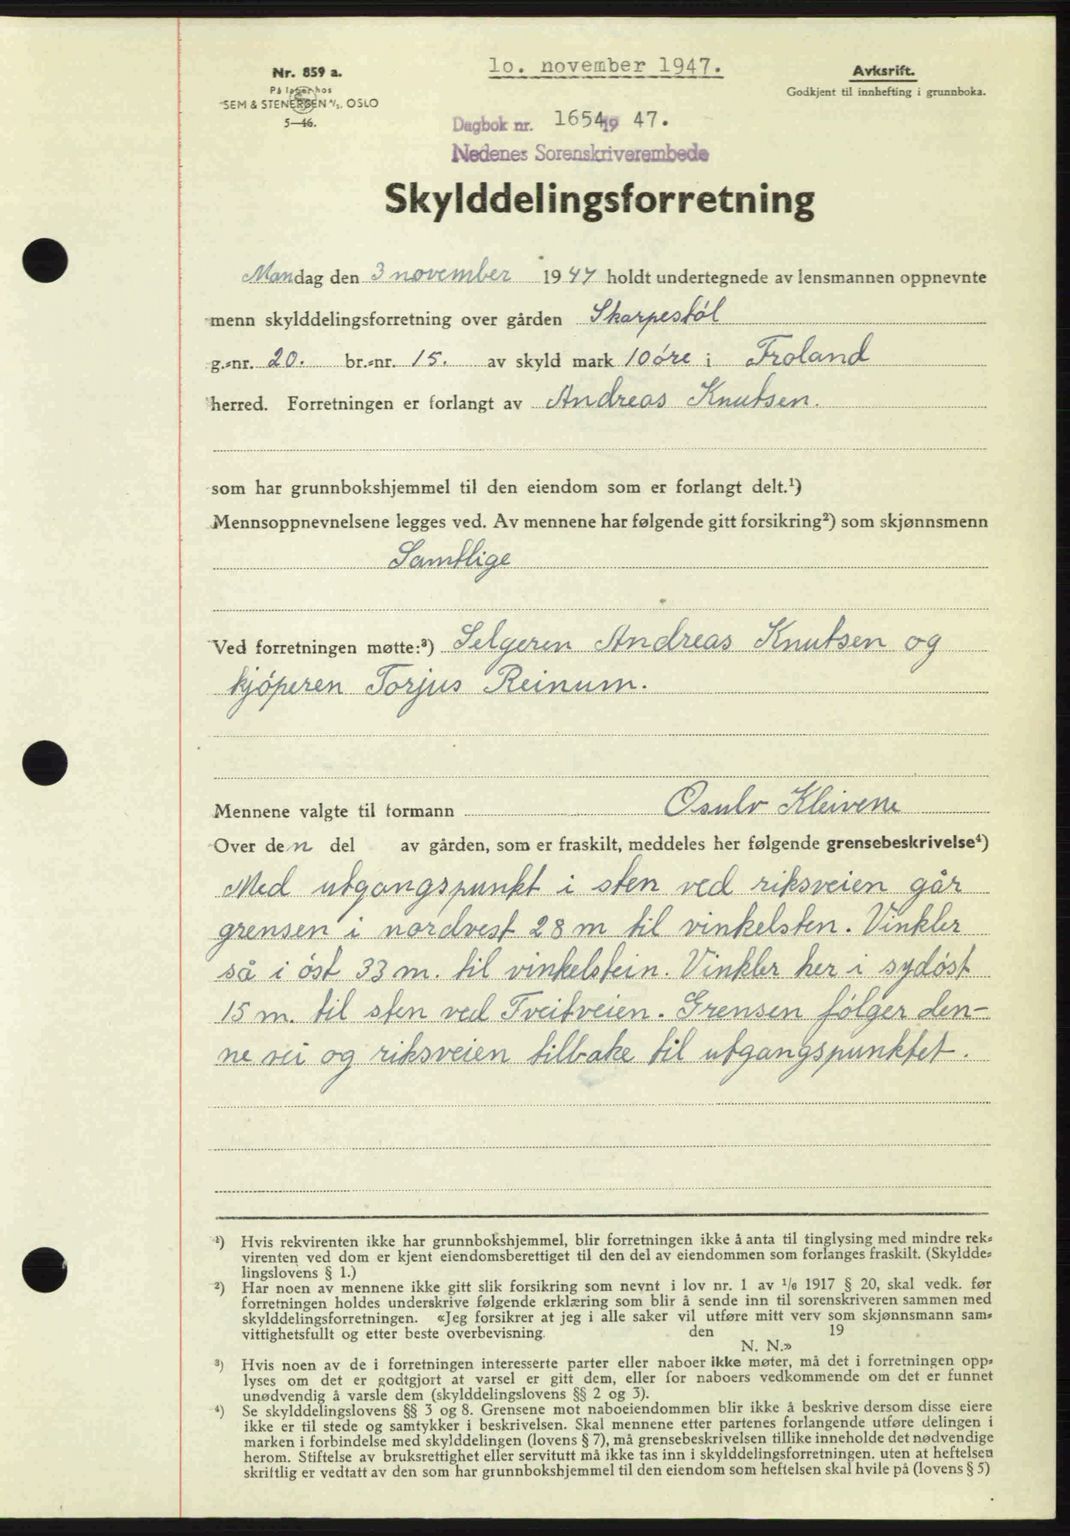 Nr. 859 a.
På lager hos
SEM & STENERSEN A/S. OSLO
5—46.
1o. november 1947.
Avksrift.
Godkjent til innhefting i grunnboka.
Dagbok nr. 1654 19 47.
Nedenes Sorenskriverembede
Skylddelingsforretning
Mandag den 3 november 1947 holdt undertegnede av lensmannen oppnevnte
menn skylddelingsforretning over gården Skarpestøl
g.-nr. 20. br.-nr. 15. av skyld mark 10 øre i Froland
herred. Forretningen er forlangt av Andreas Knutsen.
som har grunnbokshjemmel til den eiendom som er forlangt delt.¹)
Mennsoppnevnelsene legges ved. Av mennene har følgende gitt forsikring²) som skjønnsmenn
Samtlige
Ved forretningen møtte:³) Selgeren Andreas Knutsen og
kjøperen Torjus Reinum.
Mennene valgte til formann Osulv Kleivene
Over den del av gården, som er fraskilt, meddeles her følgende grensebeskrivelse⁴)
Med utgangspunkt i sten ved riksveien går
grensen i nordvest 28 m til vinkelsten. Vinkler
så i øst 33 m. til vinkelstein. Vinkler her i sydøst
15 m. til sten ved Tveitveien. Grensen følger den-
ne vei og riksveien tilbake til utgangspunktet.
¹) Hvis rekvirenten ikke har grunnbokshjemmel, blir forretningen ikke å anta til tinglysing med mindre rek-
virenten ved dom er kjent eiendomsberettiget til den del av eiendommen som forlanges fraskilt. (Skyldde-
lingslovens § 1.)
²) Har noen av mennene ikke gitt slik forsikring som nevnt i lov nr. 1 av 1/6 1917 § 20, skal vedk. før
forretningen holdes underskrive følgende erklæring som blir å sende inn til sorenskriveren sammen med
skylddelingsforretningen. «Jeg forsikrer at jeg i alle saker vil utføre mitt verv som skjønnsmann sam-
vittighetsfullt og etter beste overbevisning. den 19
N. N.»
³) Hvis noen av de i forretningen interesserte parter eller naboer ikke møter, må det i forretningen opp-
lyses om det er godtgjort at varsel er gitt dem, eller for naboers vedkommende om det er funnet
unødvendig å varsle dem (skylddelingslovens §§ 2 og 3).
⁴) Se skylddelingslovens §§ 3 og 8. Grensene mot naboeiendommen blir ikke å beskrive dersom disse eiere
ikke er til stede og samtykker i beskrivelsen. Skal mennene etter partenes forlangende utføre delingen i
marken i forbindelse med skylddelingen (lovens § 7), må grensebeskrivelsen tillike inneholde det nødvendige
herom. Stiftelse av bruksrettighet eller servitutt må ikke tas inn i skylddelingsforretningen. uten at heftelsen
skriftlig er vedtatt av den som har grunnbokshjemmel til den eiendom som heftelsen skal hvile på (lovens § 5)